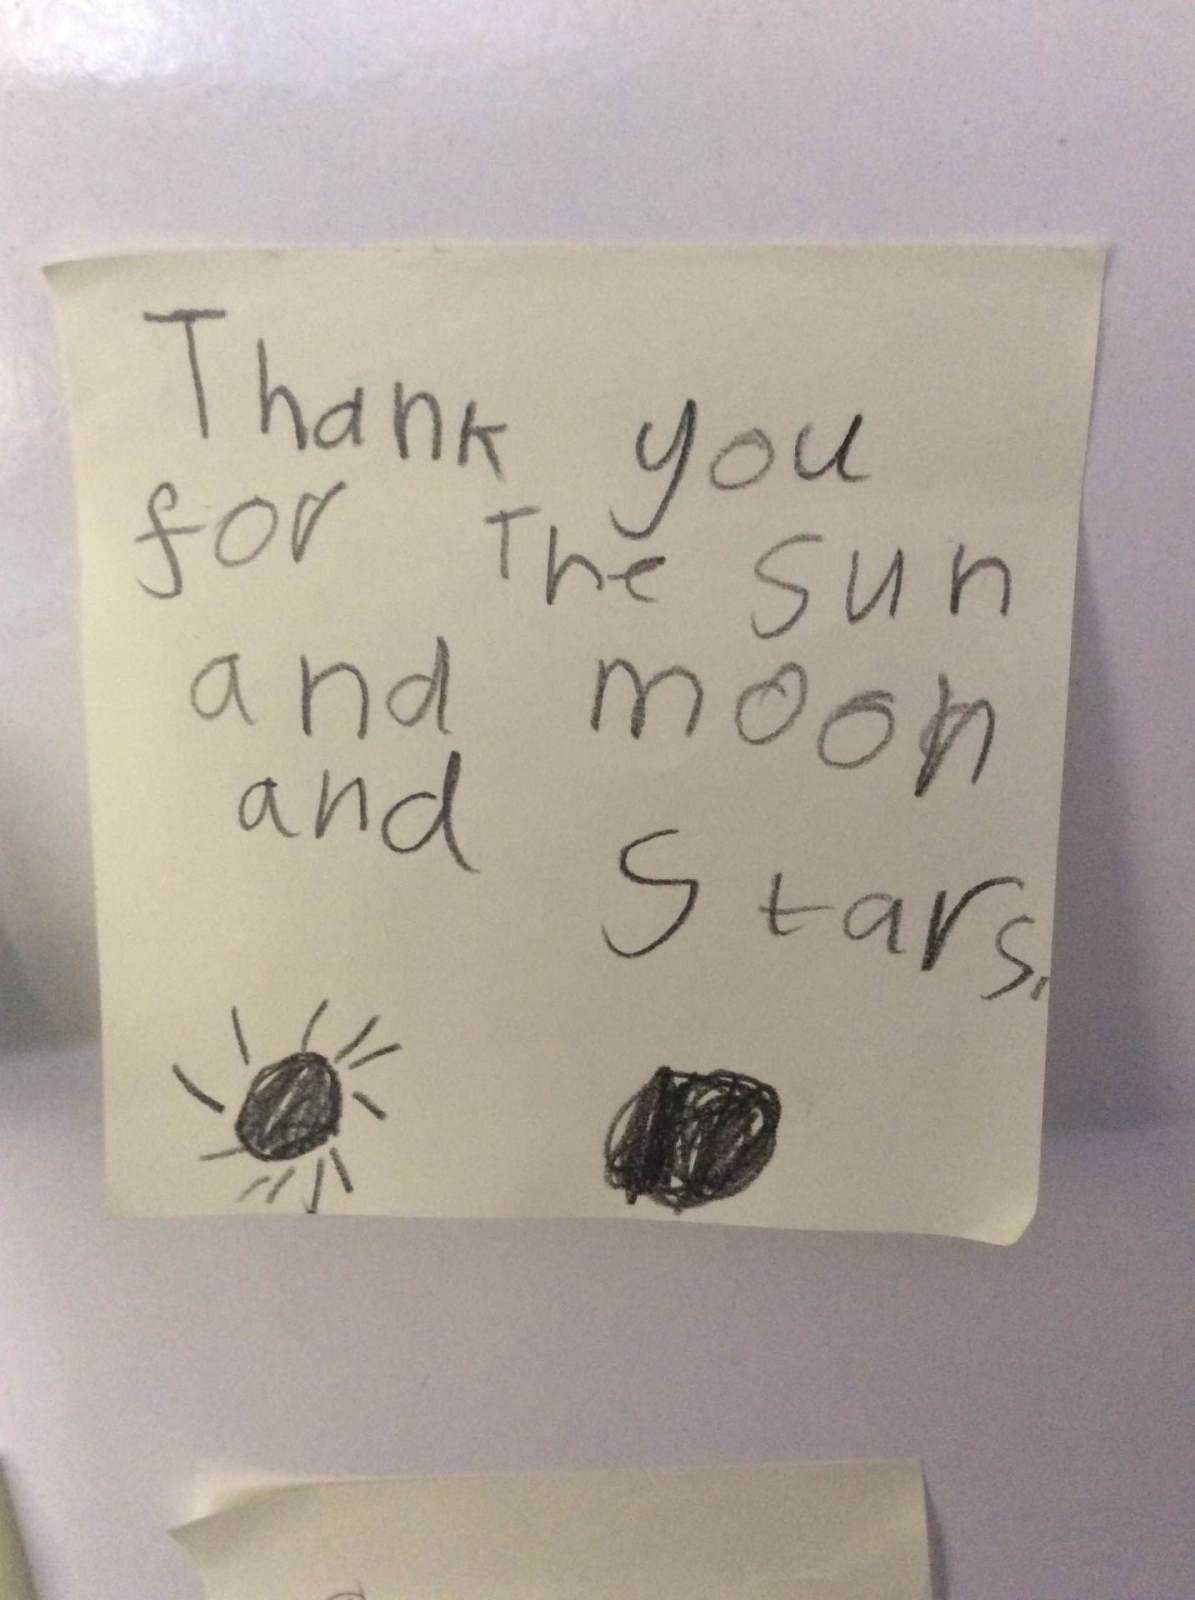 Thank you
for The sun
and moon
and
Stars.